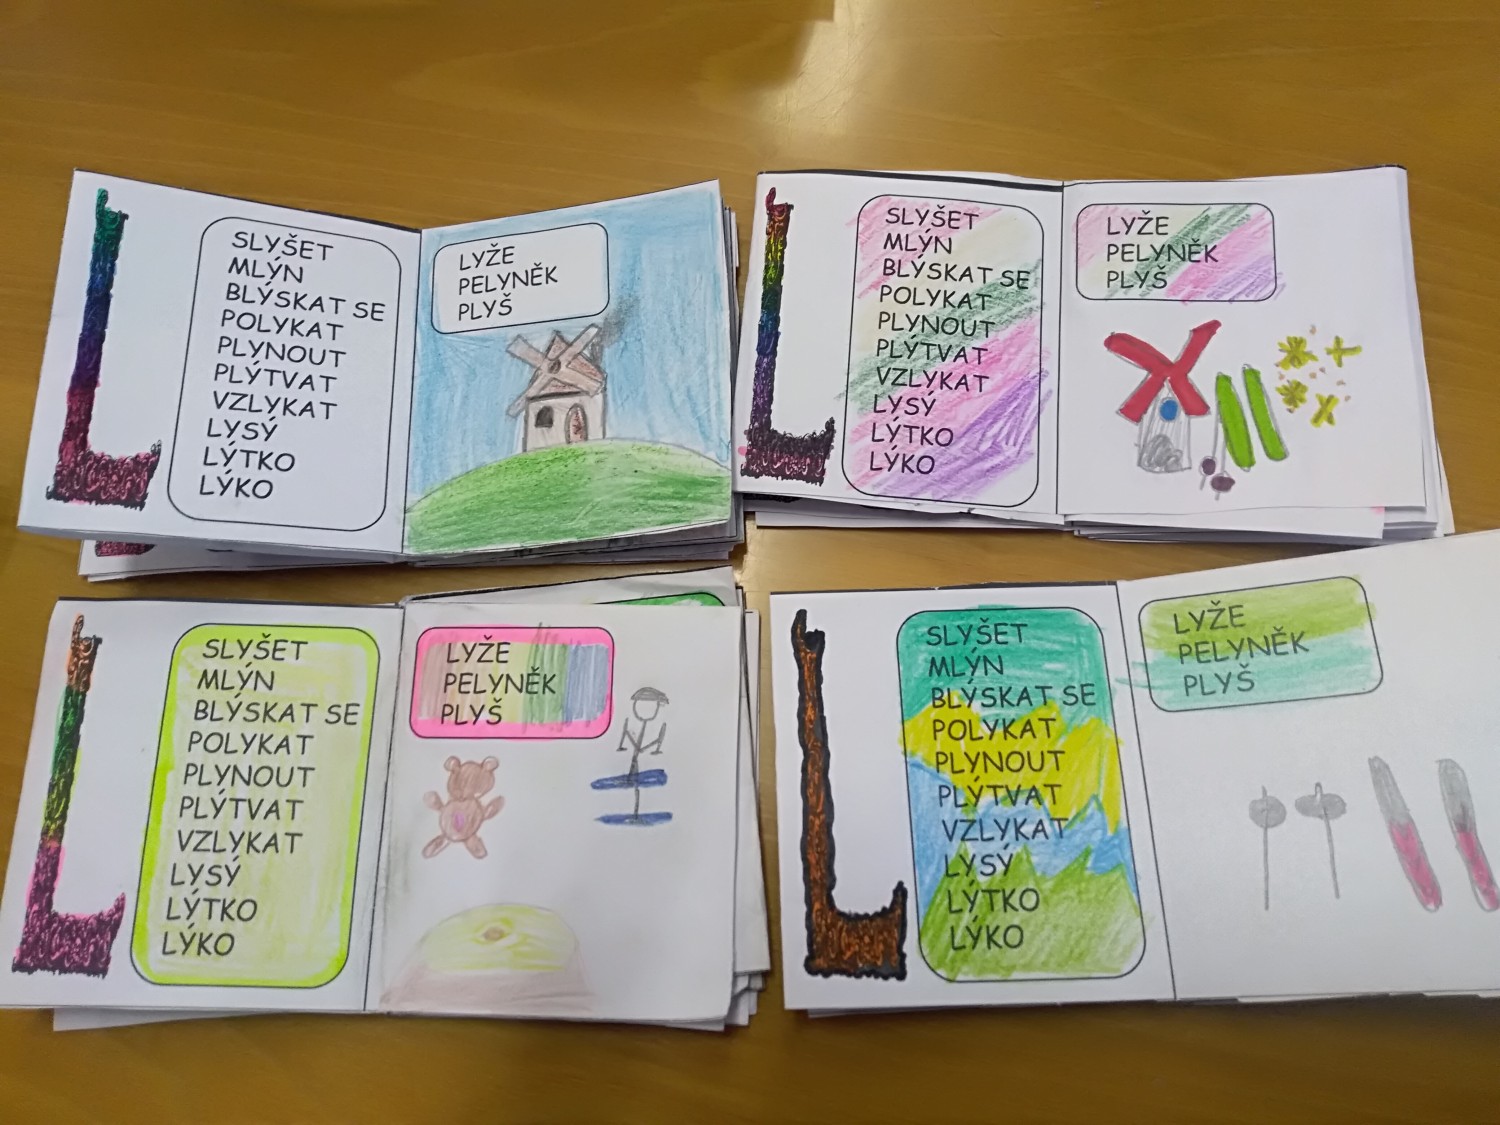 L
SLYŠET
MLÝN
BLÝSKAT SE
POLYKAT
PLYNOUT
PLÝTVAT
VZLYKAT
LYSÝ
LÝTKO
LÝKO
LYŽE
PELYNĚK
PLYŠ
L
SLYŠET
MLÝN
BLÝSKAT SE
POLYKAT
PLYNOUT
PLÝTVAT
VZLYKAT
LYSÝ
LÝTKO
LÝKO
LYŽE
PELYNĚK
PLYŠ
L
SLYŠET
MLÝN
BLÝSKAT SE
POLYKAT
PLYNOUT
PLÝTVAT
VZLYKAT
LYSÝ
LÝTKO
LÝKO
LYŽE
PELYNĚK
PLYŠ
L
SLYŠET
MLÝN
BLÝSKAT SE
POLYKAT
PLYNOUT
PLÝTVAT
VZLYKAT
LYSÝ
LÝTKO
LÝKO
LYŽE
PELYNĚK
PLYŠ